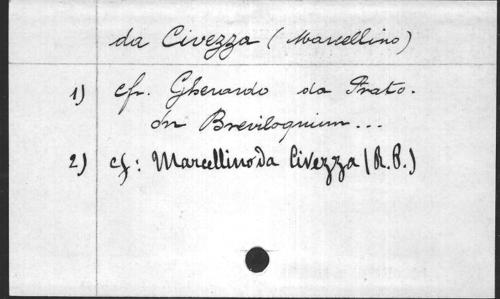 da Civezza (Marcellino)
1) cfr. Gherardo da Prato.
In Breviloquium...
2) cf: Marcellino da Civezza (R.P.)